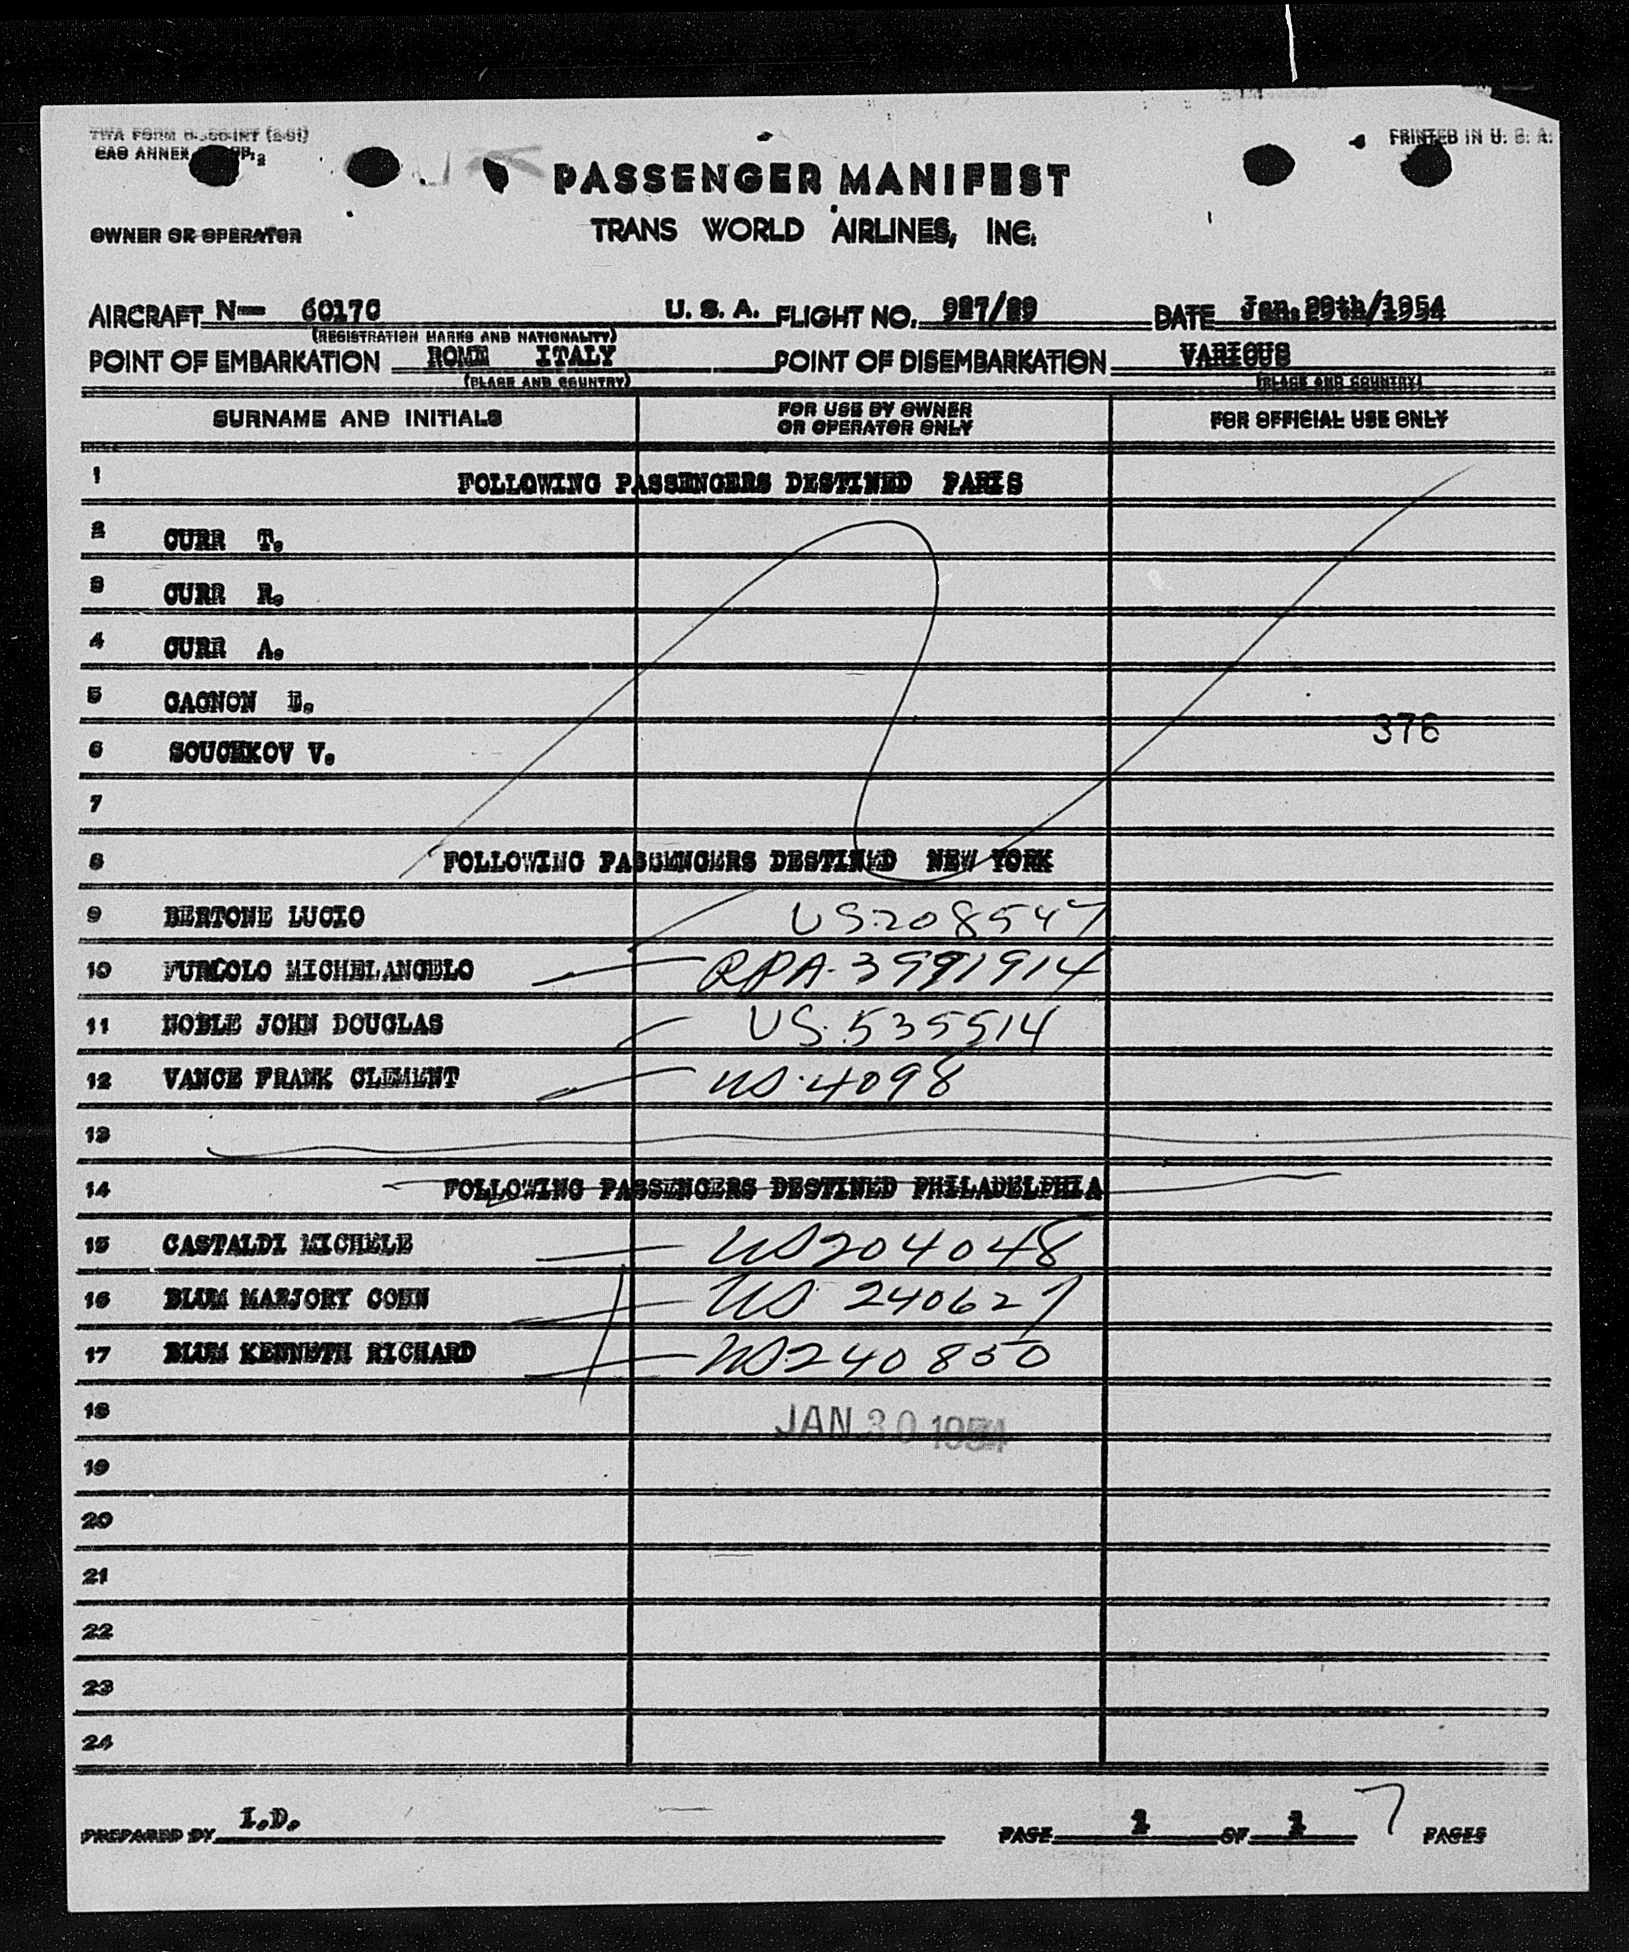 PRINTED IN U. S. A.
CAO ANNEX
PASSENGER MANIFEST
OWNER OR OPERATOR
TRANS WORLD AIRLINES, INC.
AIRCRAFT N— 6017C U. S. A. FLIGHT NO. 927/29 DATE Jan. 29th/1954
(REGISTRATION MARKS AND NATIONALITY)
POINT OF EMBARKATION ROME ITALY POINT OF DISEMBARKATION VARIOUS
(PLACE AND COUNTRY) (PLACE AND COUNTRY)
SURNAME AND INITIALS FOR USE BY OWNER OR OPERATOR ONLY FOR OFFICIAL USE ONLY
1 FOLLOWING PASSENGERS DESTINED PARIS
2 CURR T.
3 CURR R.
4 CURR A.
5 GAGNON E.
376
6 SOUCHKOV V.
7
8 FOLLOWING PASSENGERS DESTINED NEW YORK
9 BERTONE LUCIO US.208547
10 FURCOLO MICHELANGELO RPA-3991914
11 NOBLE JOHN DOUGLAS US.535514
12 VANCE FRANK CLEMENT US.4098
13
14 FOLLOWING PASSENGERS DESTINED PHILADELPHIA
15 CASTALDI MICHELE US204048
16 BLUM MARJORY COHN US 240627
17 BLUM KENNETH RICHARD US.240850
18 JAN 30 1954
19
20
21
22
23
24
PREPARED BY I.D. PAGE 1 OF 1 7 PAGES